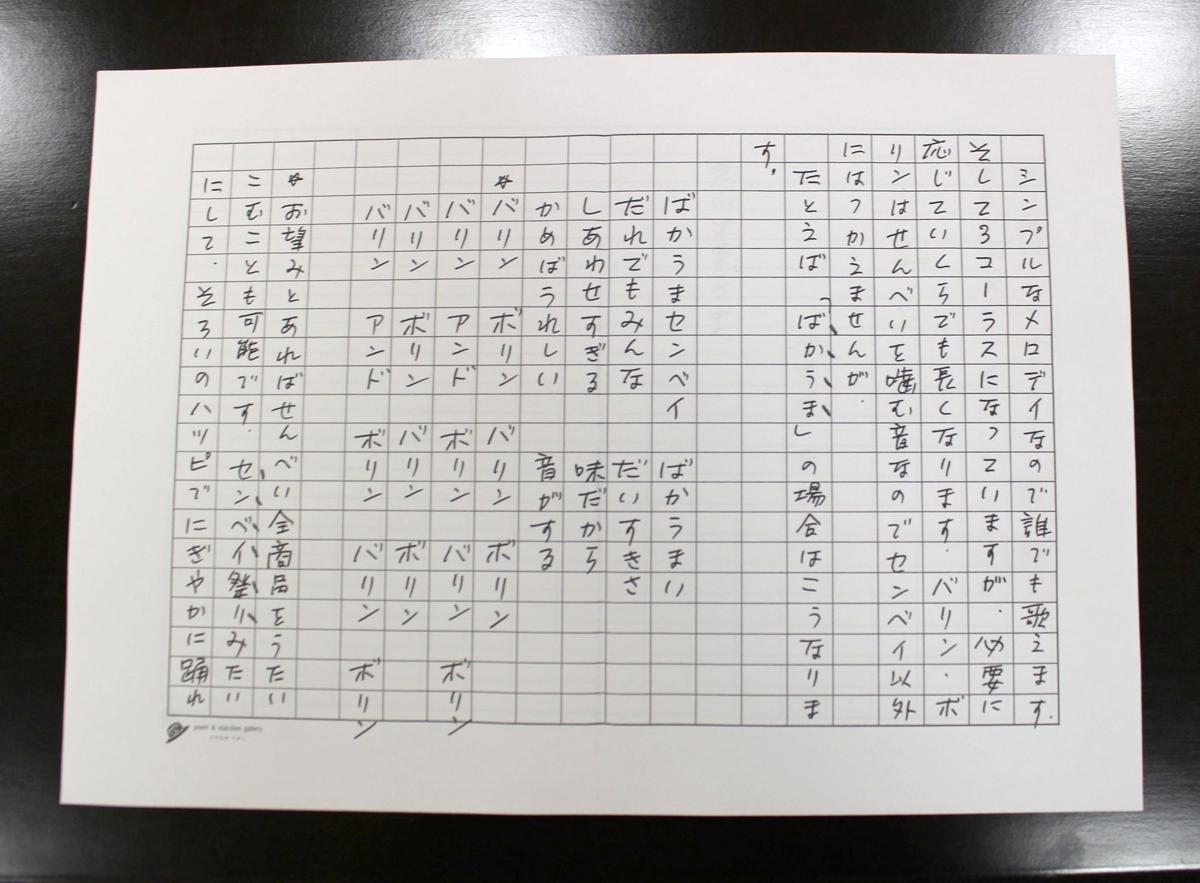 シンプルなメロディなので誰でも歌えます.
そして3コーラスになっていますが.必要に
応じていくらでも長くなります.バリン.ボ
リンはせんべいを噛む音なのでセンベイ以外
にはつかえませんが.
たとえば「ばかうま」の場合はこうなりま
す.
ばかうまセンベイ　ばかうまい
だれでもみんな　だいすきさ
しあわせすぎる　味だから
かめばうれしい　音がする
☆バリン　ボリン　バリン　ボリン
バリン　アンド　ボリン　バリン　ボリン
バリン　ボリン　バリン　ボリン
バリン　アンド　ボリン　バリン　ボリン
☆お望みとあればせんべい全商品をうたい
こむことも可能です.センベイ祭りみたい
にして.そろいのハッピでにぎやかに踊れ
poem & märchen gallery